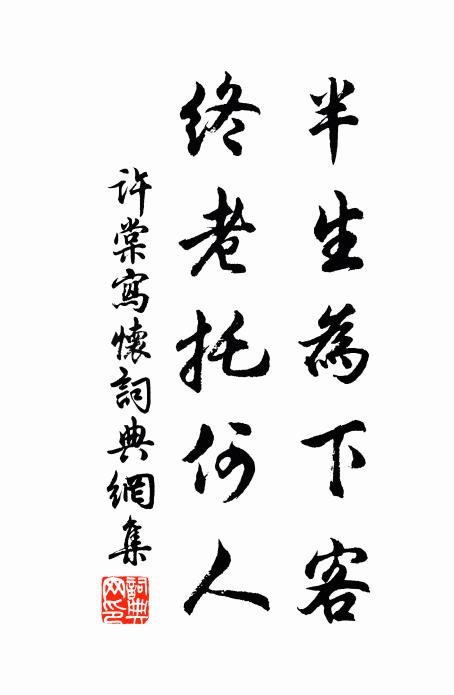 半生為下客
終老托何人
許棠寫懷詞典網集
詞典
网印